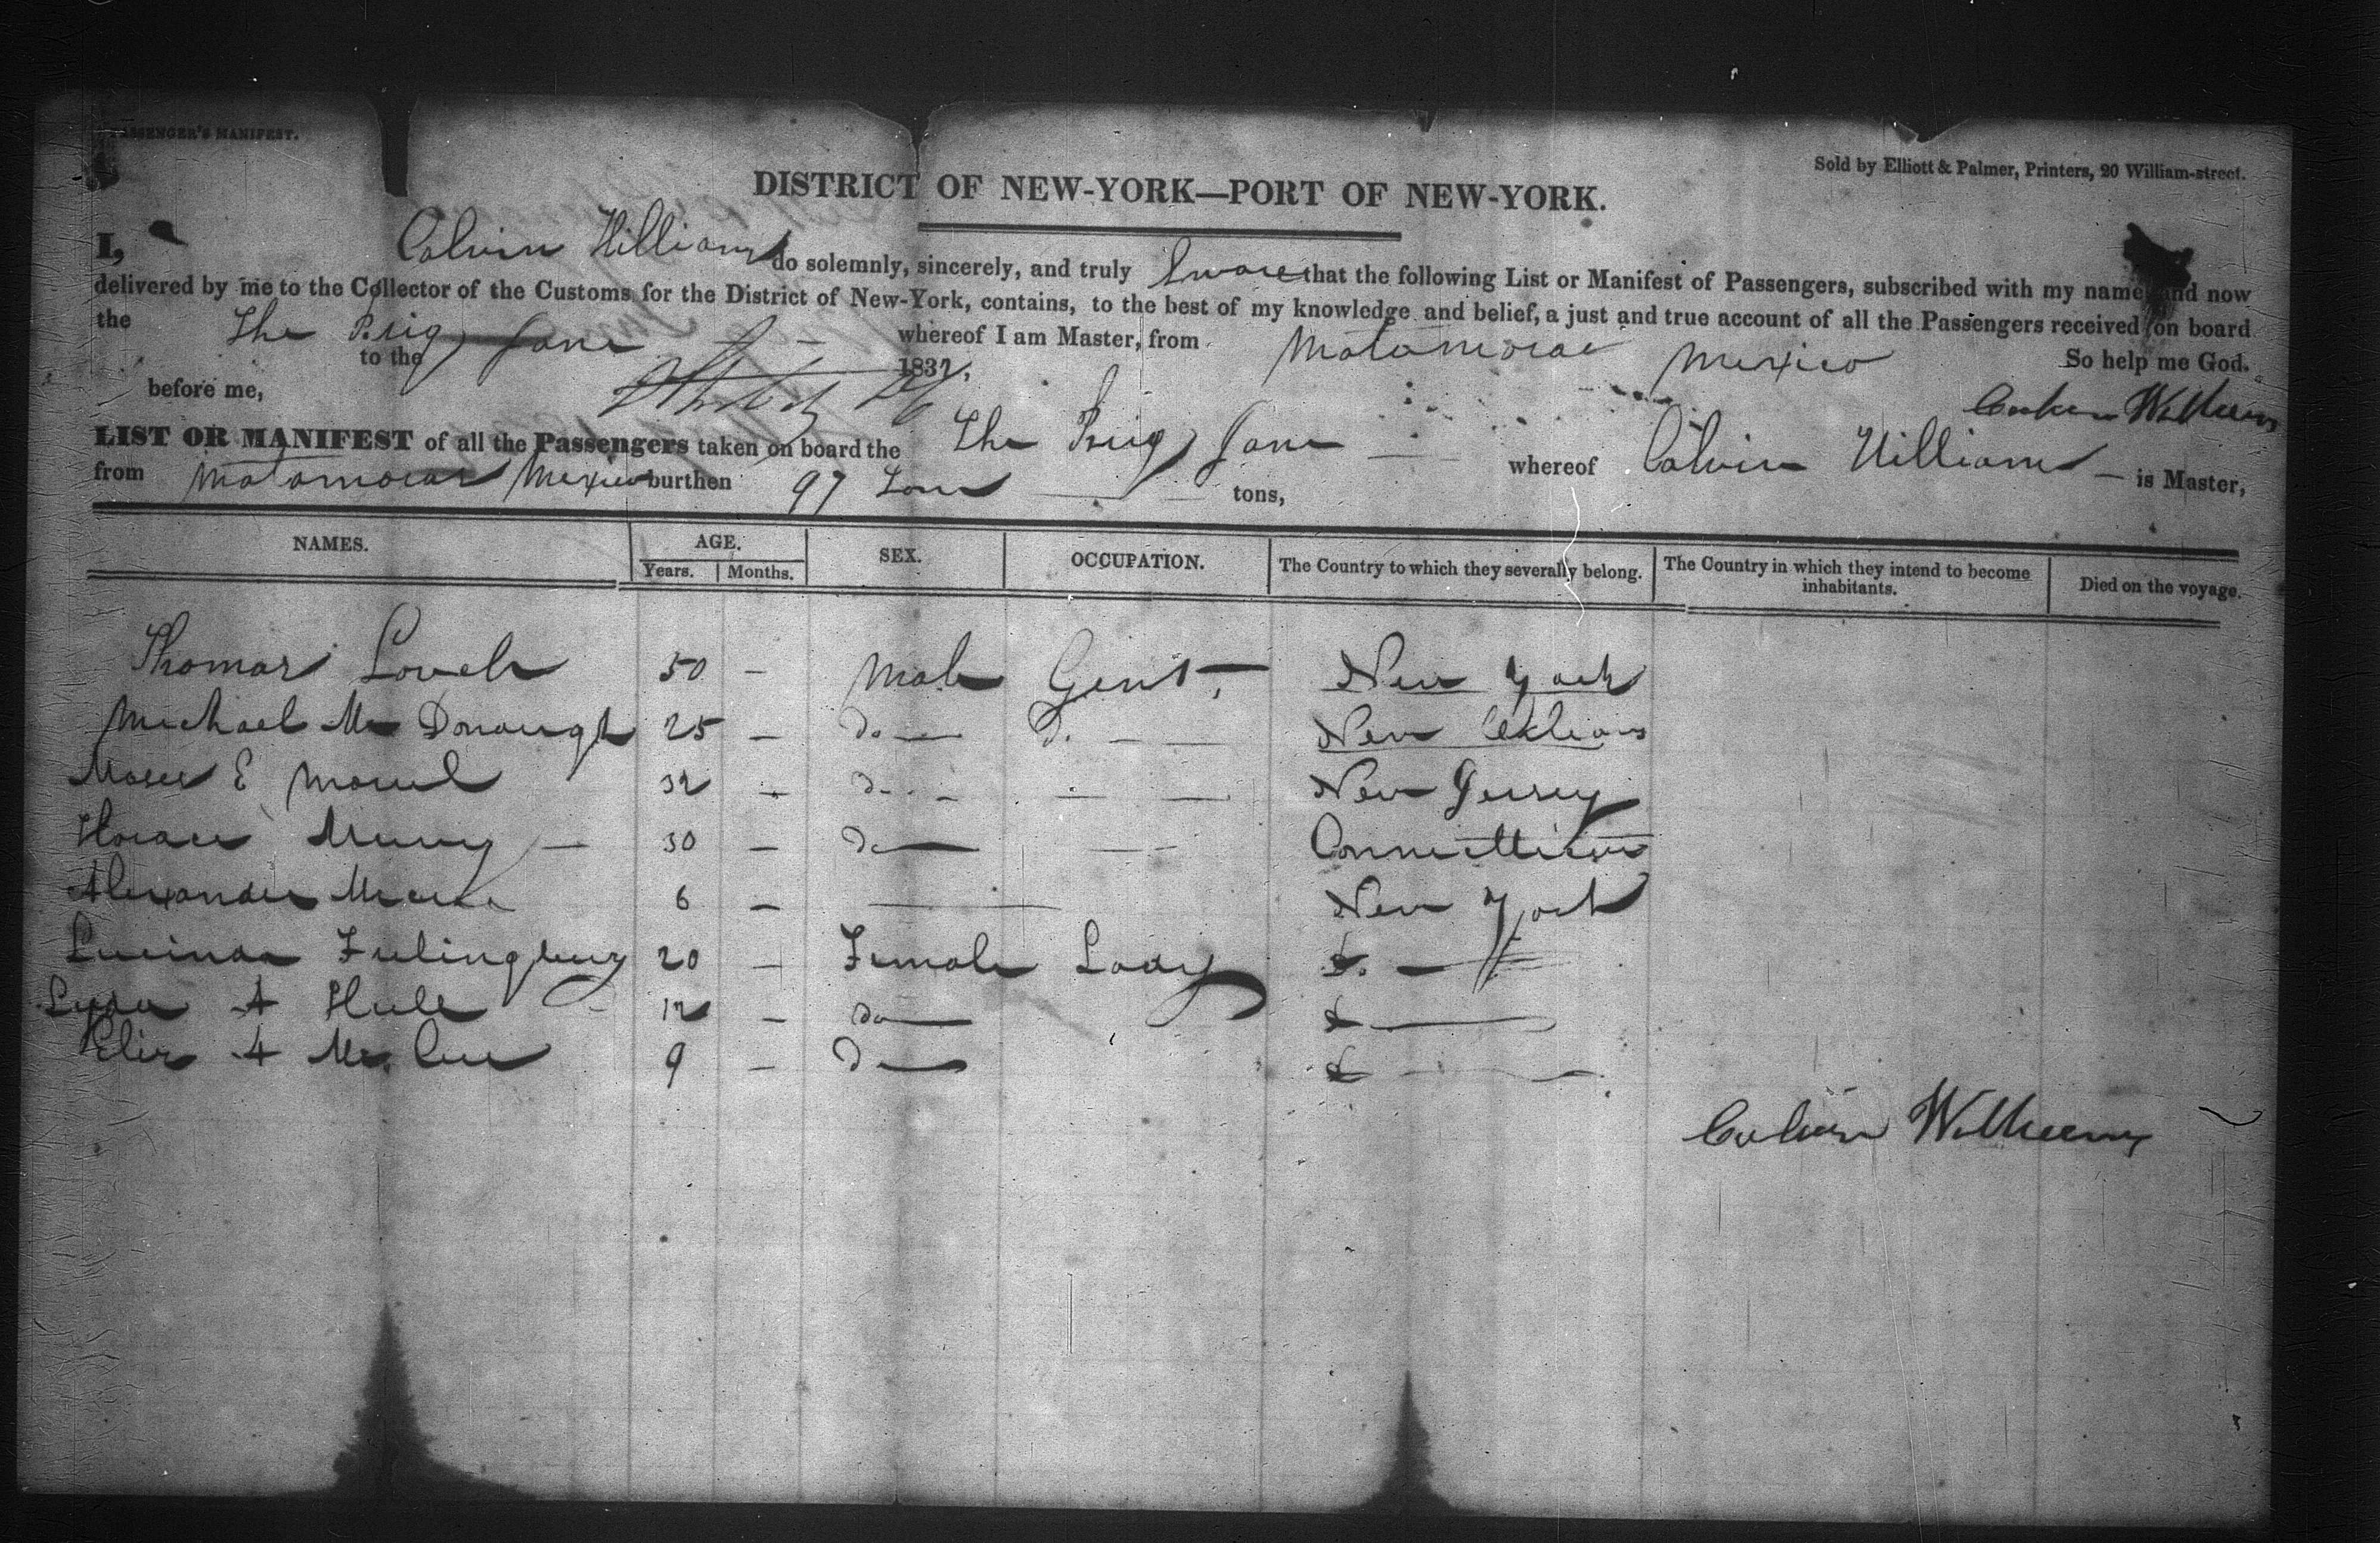 PASSENGER'S MANIFEST.
Sold by Elliott & Palmer, Printers, 20 William-street.
DISTRICT OF NEW-YORK—PORT OF NEW-YORK.
I, Calvin Williams do solemnly, sincerely, and truly Swore that the following List or Manifest of Passengers, subscribed with my name and now
delivered by me to the Collector of the Customs for the District of New-York, contains, to the best of my knowledge and belief, a just and true account of all the Passengers received on board
the The Brig Jane whereof I am Master, from Matamoras Mexico
to the 1832, So help me God.
before me, Calvin Williams
LIST OR MANIFEST of all the Passengers taken on board the The Brig Jane whereof Calvin Williams is Master,
from Matamoras Mexico burthen 97 Tons tons,
NAMES. AGE. SEX. OCCUPATION. The Country to which they severally belong. The Country in which they intend to become inhabitants. Died on the voyage.
Years. Months.
Thomas Lovell 50 - Male Gent, New York
Michael Mc Donough 25 - Do Do New Orleans
Moses E 32 - Do New Jersey
Horace 30 - Do Connetticut
Alexander 6 - New York
Lucinda 20 - Female Lady Do
A Hull 12 - Do Do
Eliz A Mc 9 - Do Do
Calvin Williams